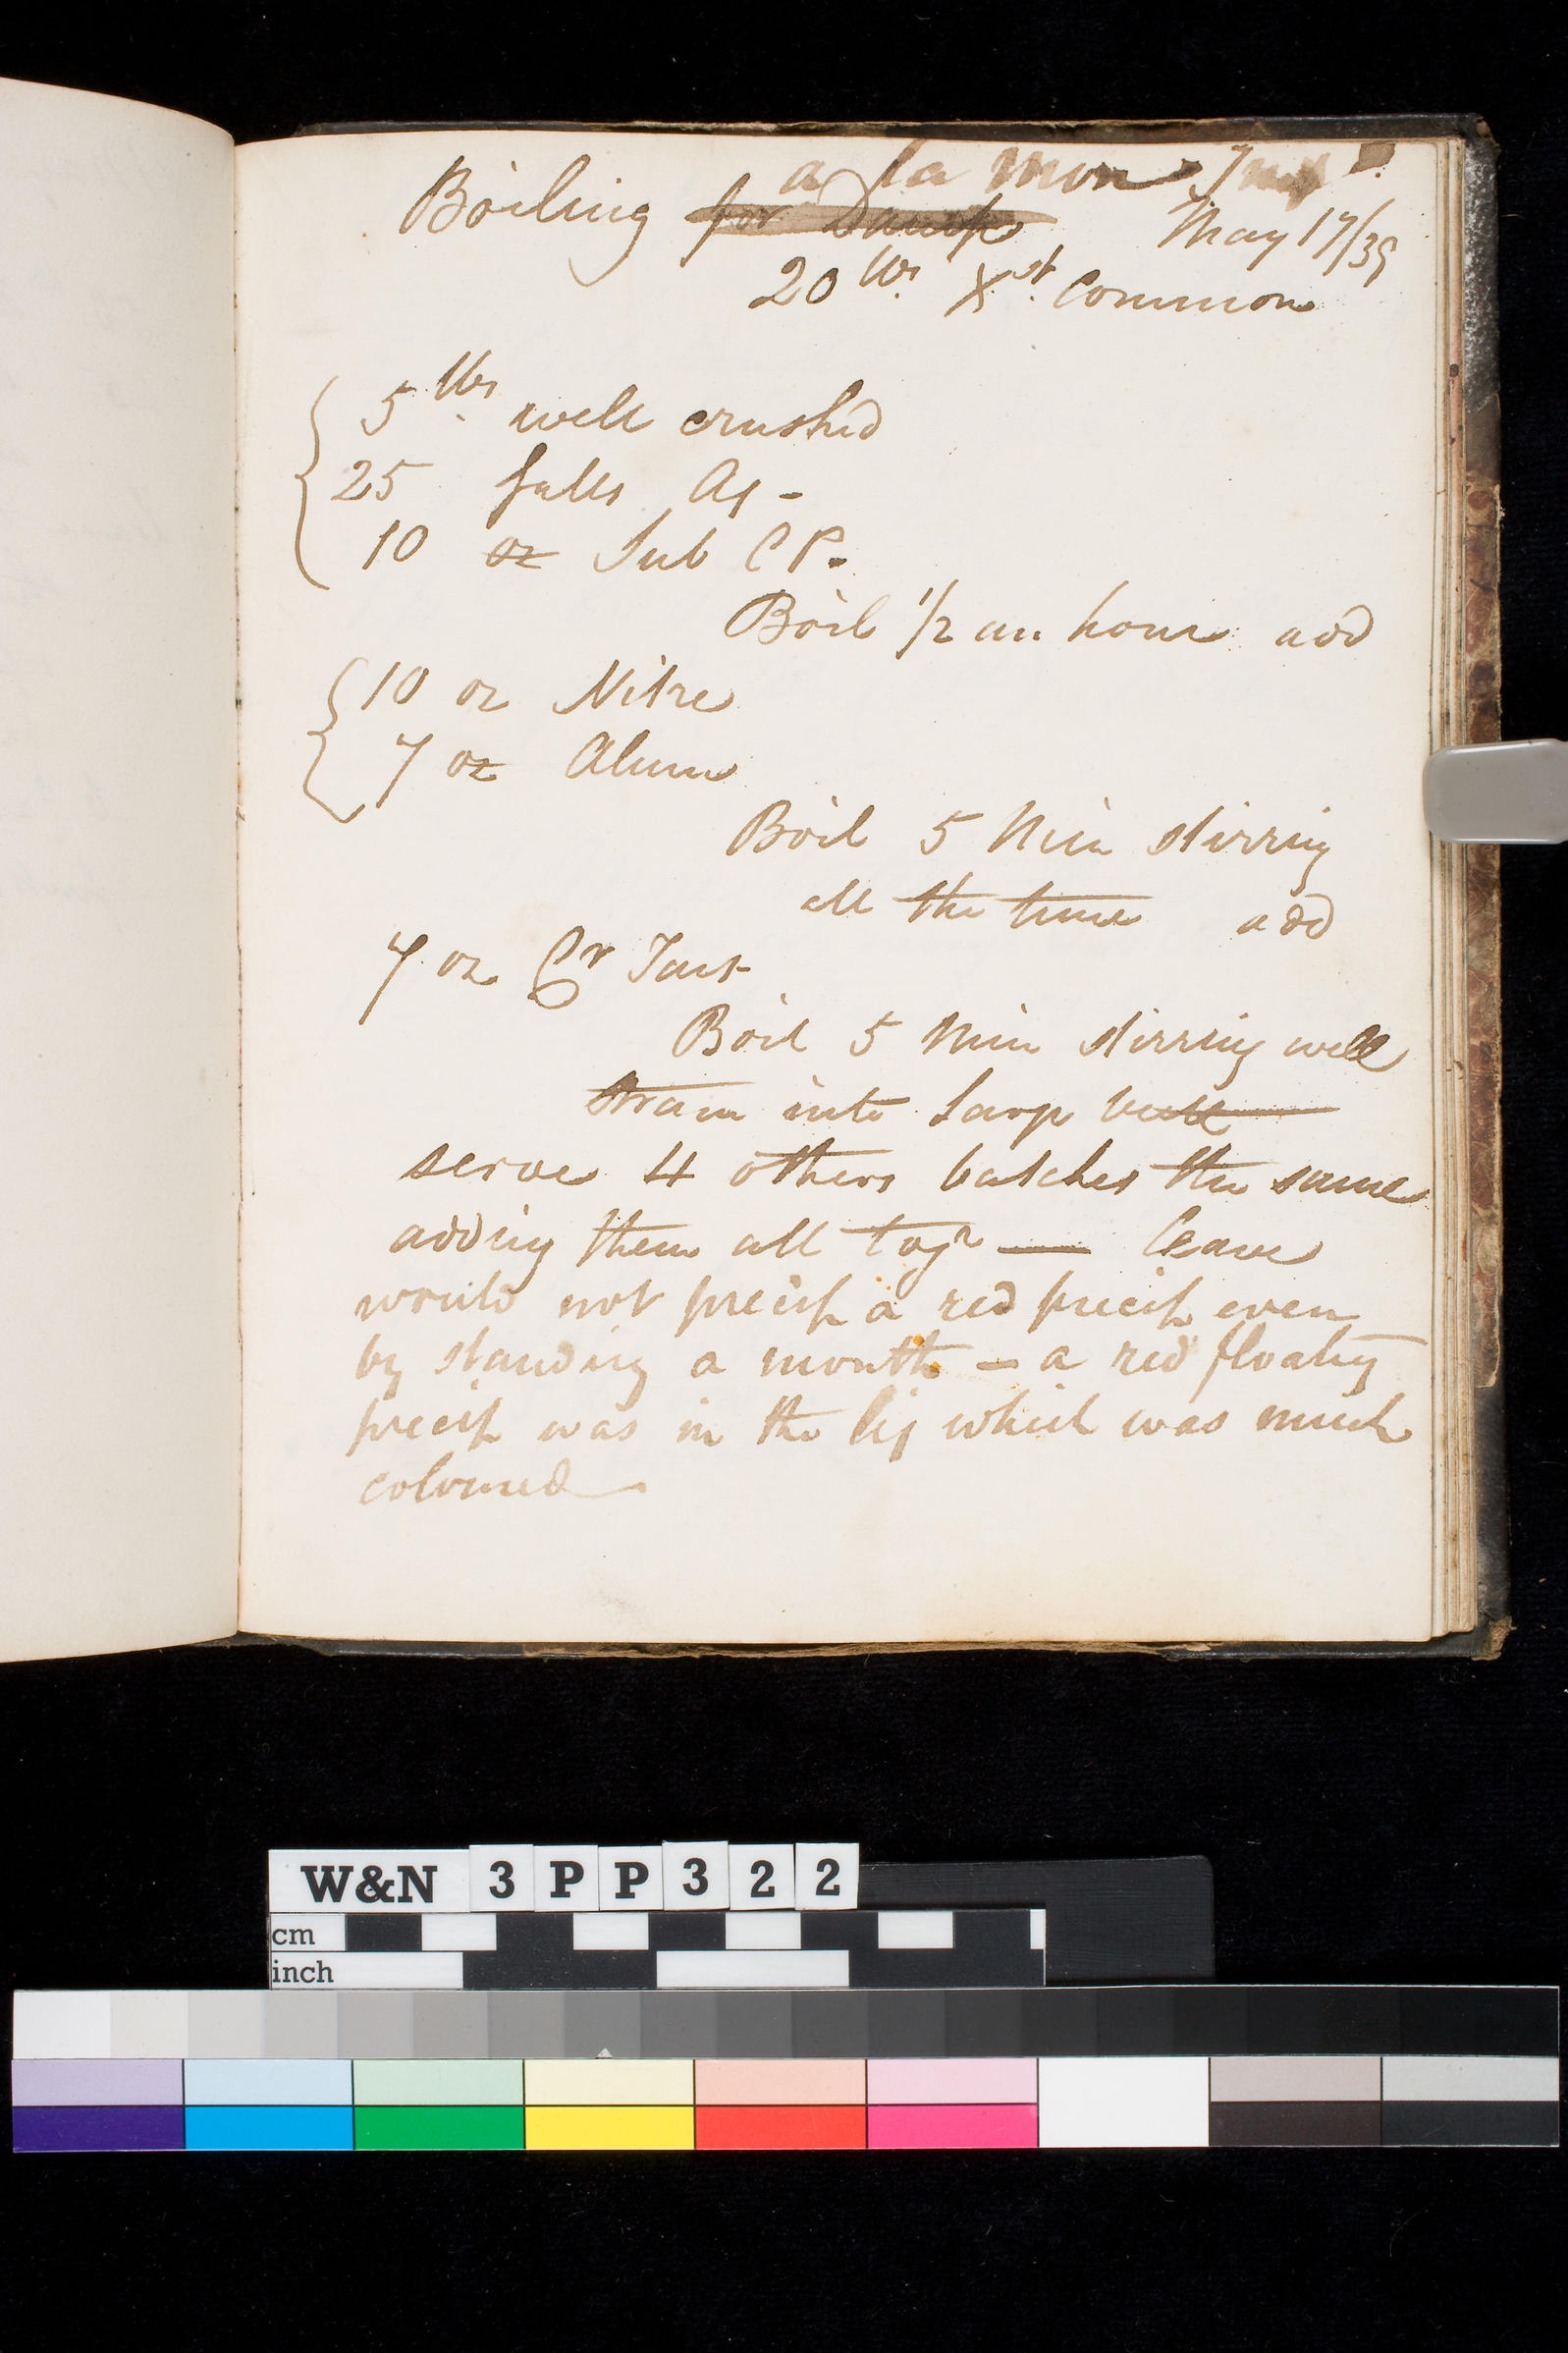 a la mon
Boiling for Damp May 17/39
20 lbs. Xst. Common
5 lbs well crushed
25 falls Aq -
10 oz Sub CP.
Boil 1/2 an hour add
10 oz Nitre
7 oz Alum
Boil 5 Min stirring
all the time add
7 oz Cr Tart
Boil 5 Min stirring well
Strain into large
serve 4 others batches the same
adding them all togr — Leave
would not precip a red precip even
by standing a month - a red floating
precip was in the liq which was much
coloured
W&N 3PP322
cm
inch